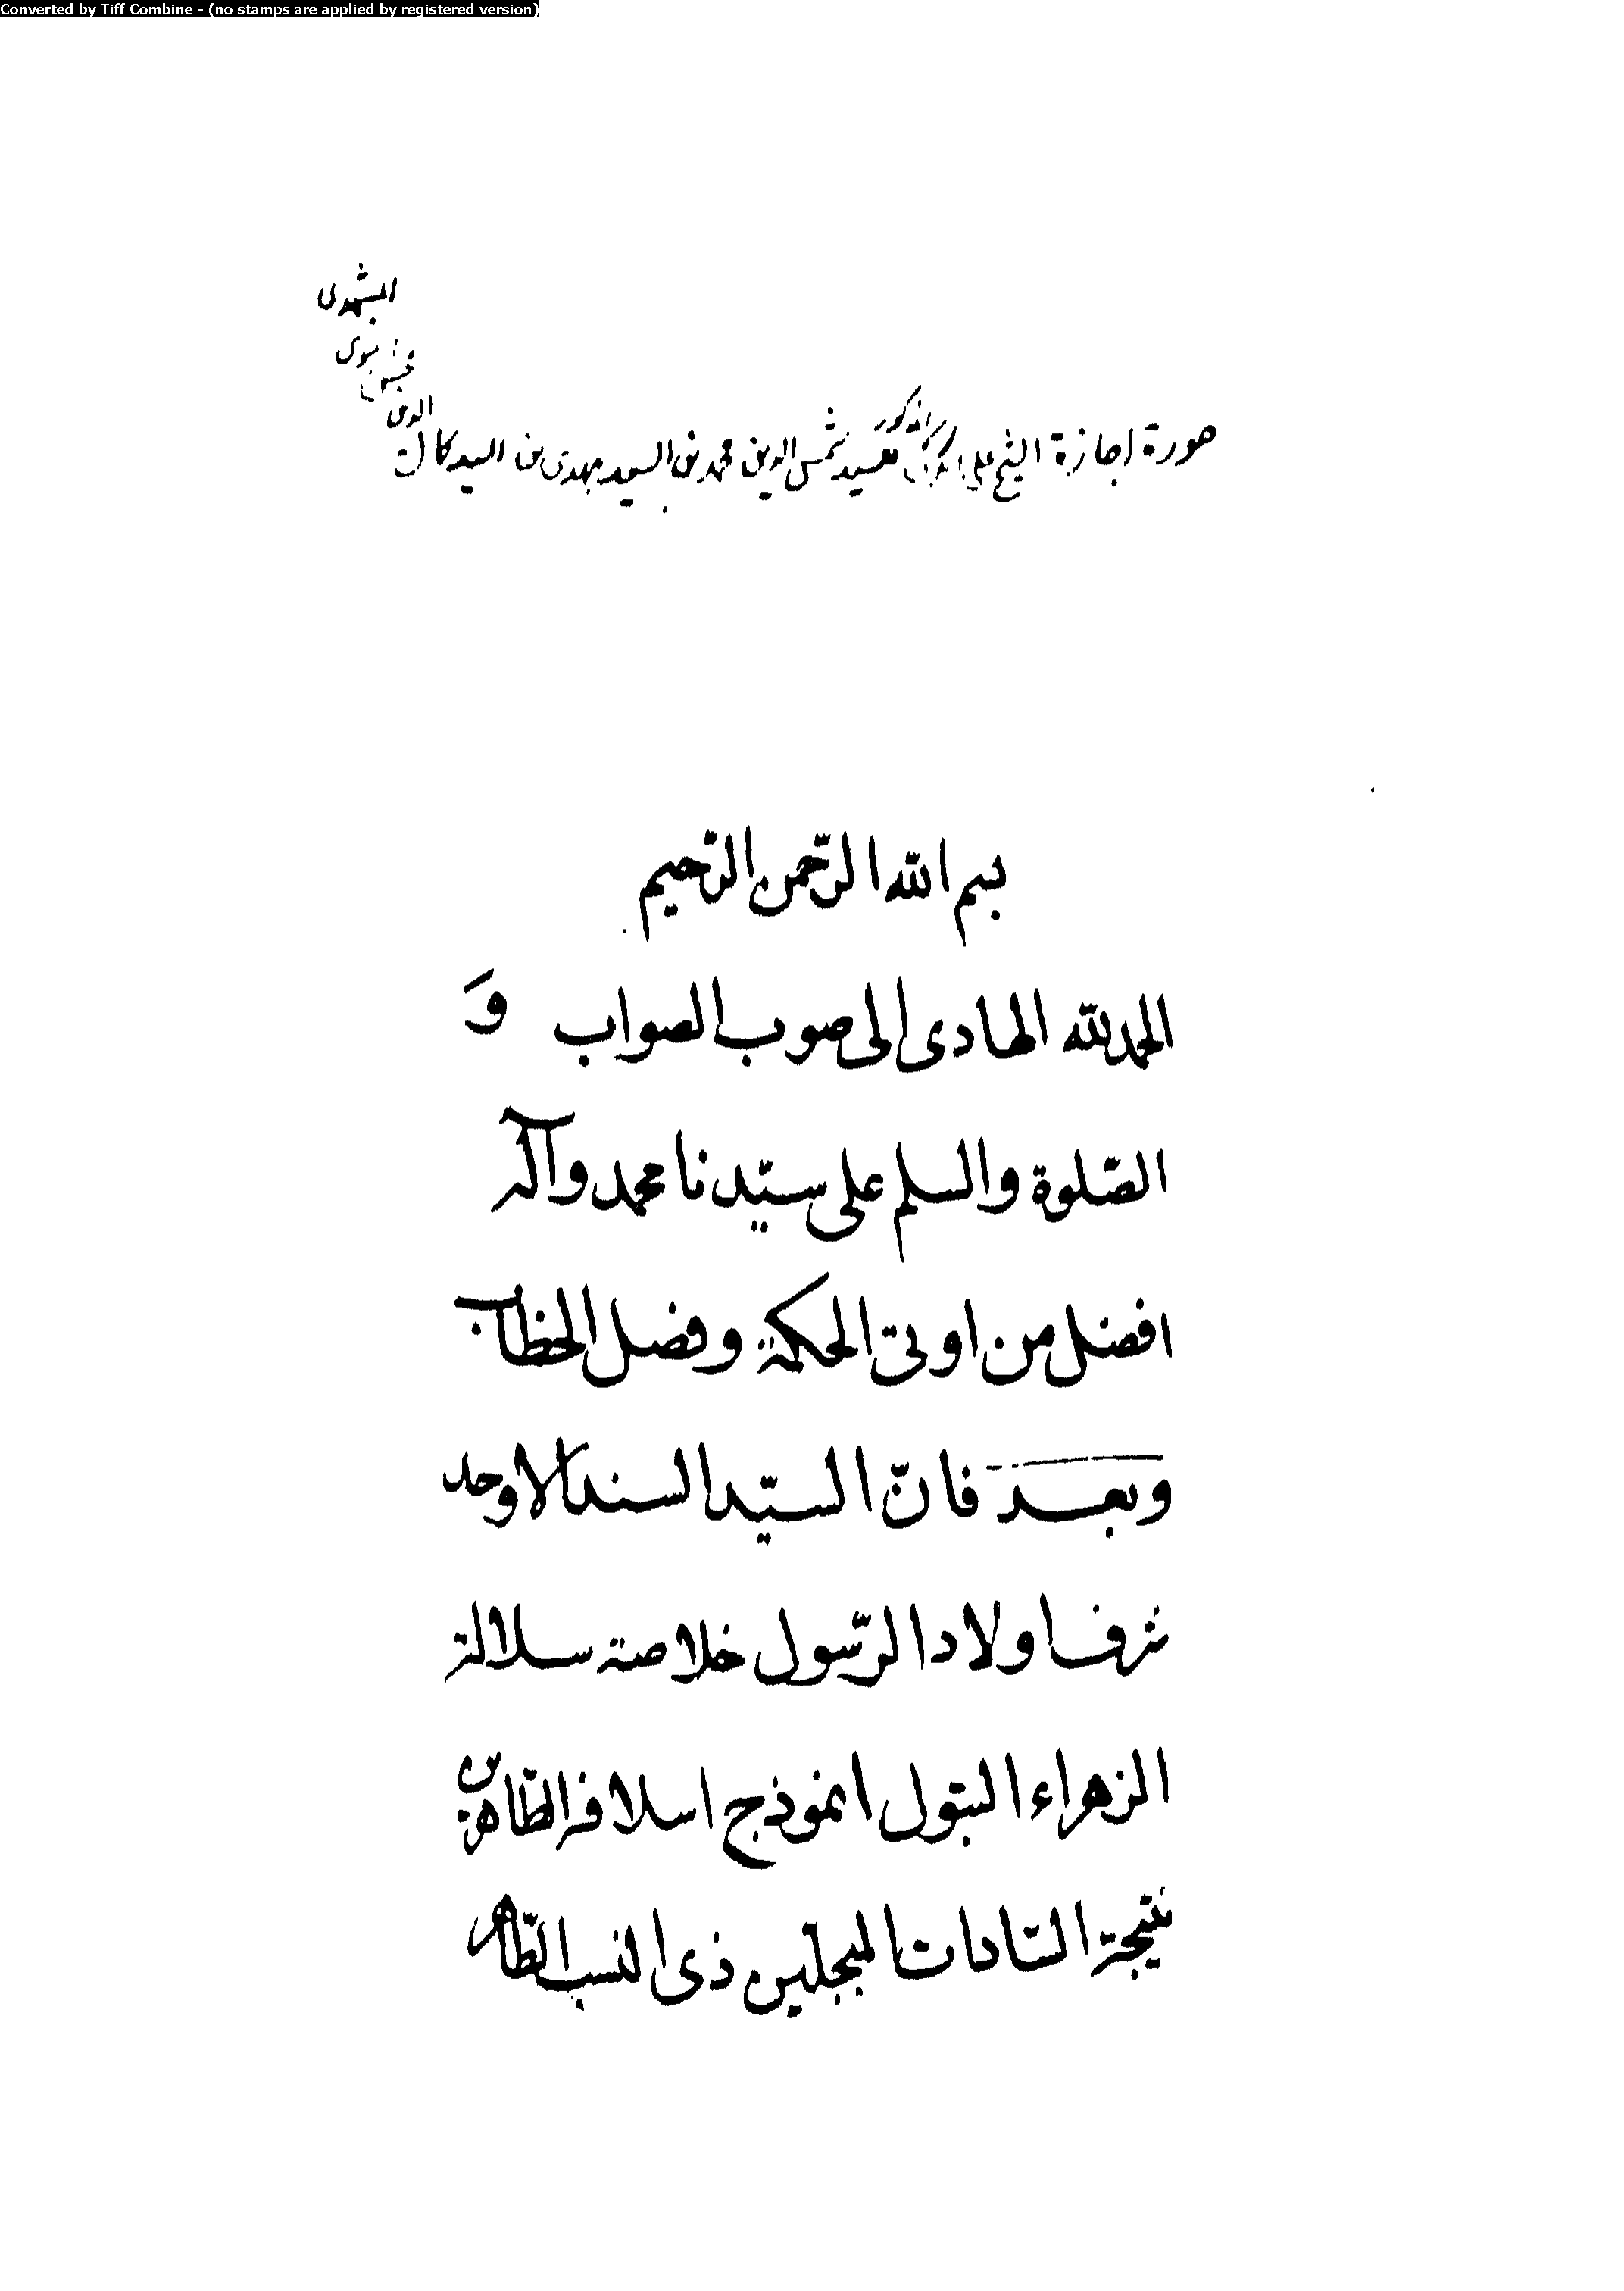 Converted by Tiff Combine - (no stamps are applied by registered version)
صورة اجازة الشيخ علي الكركي المذكور للسيد شمس الدين محمد بن السيد مهدي بن السيد كمال
الدين
محسن
المشهدى
بسم الله الرّحمن الرّحيم
الحمد لله الهادى الى صوب الصواب وَ
الصّلوة والسلم على سيّدنا محمد وآله
افضل من اوتى الحكمة وفضل الخطاب
وبعد فانّ السيّد السند الاوحد
شرف اولاد الرّسول خلاصة سلالة
الزهراء البتول انموذج اسلافه الطّاهرين
نتيجة السّادات المبجلين ذى النسب الطّاهر